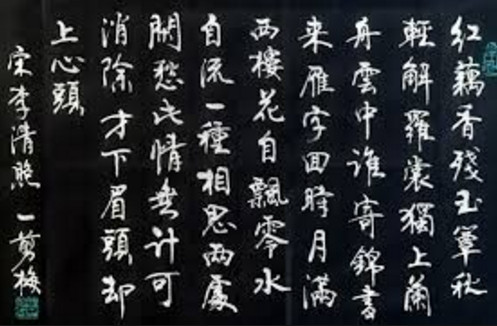 紅藕香殘玉簟秋
輕解羅裳獨上蘭
舟雲中誰寄錦書
来雁字回時月滿
西樓花自飄零水
自流一種相思兩處
閒愁此情無計可
消除才下眉頭却
上心頭
宋李清照一剪梅